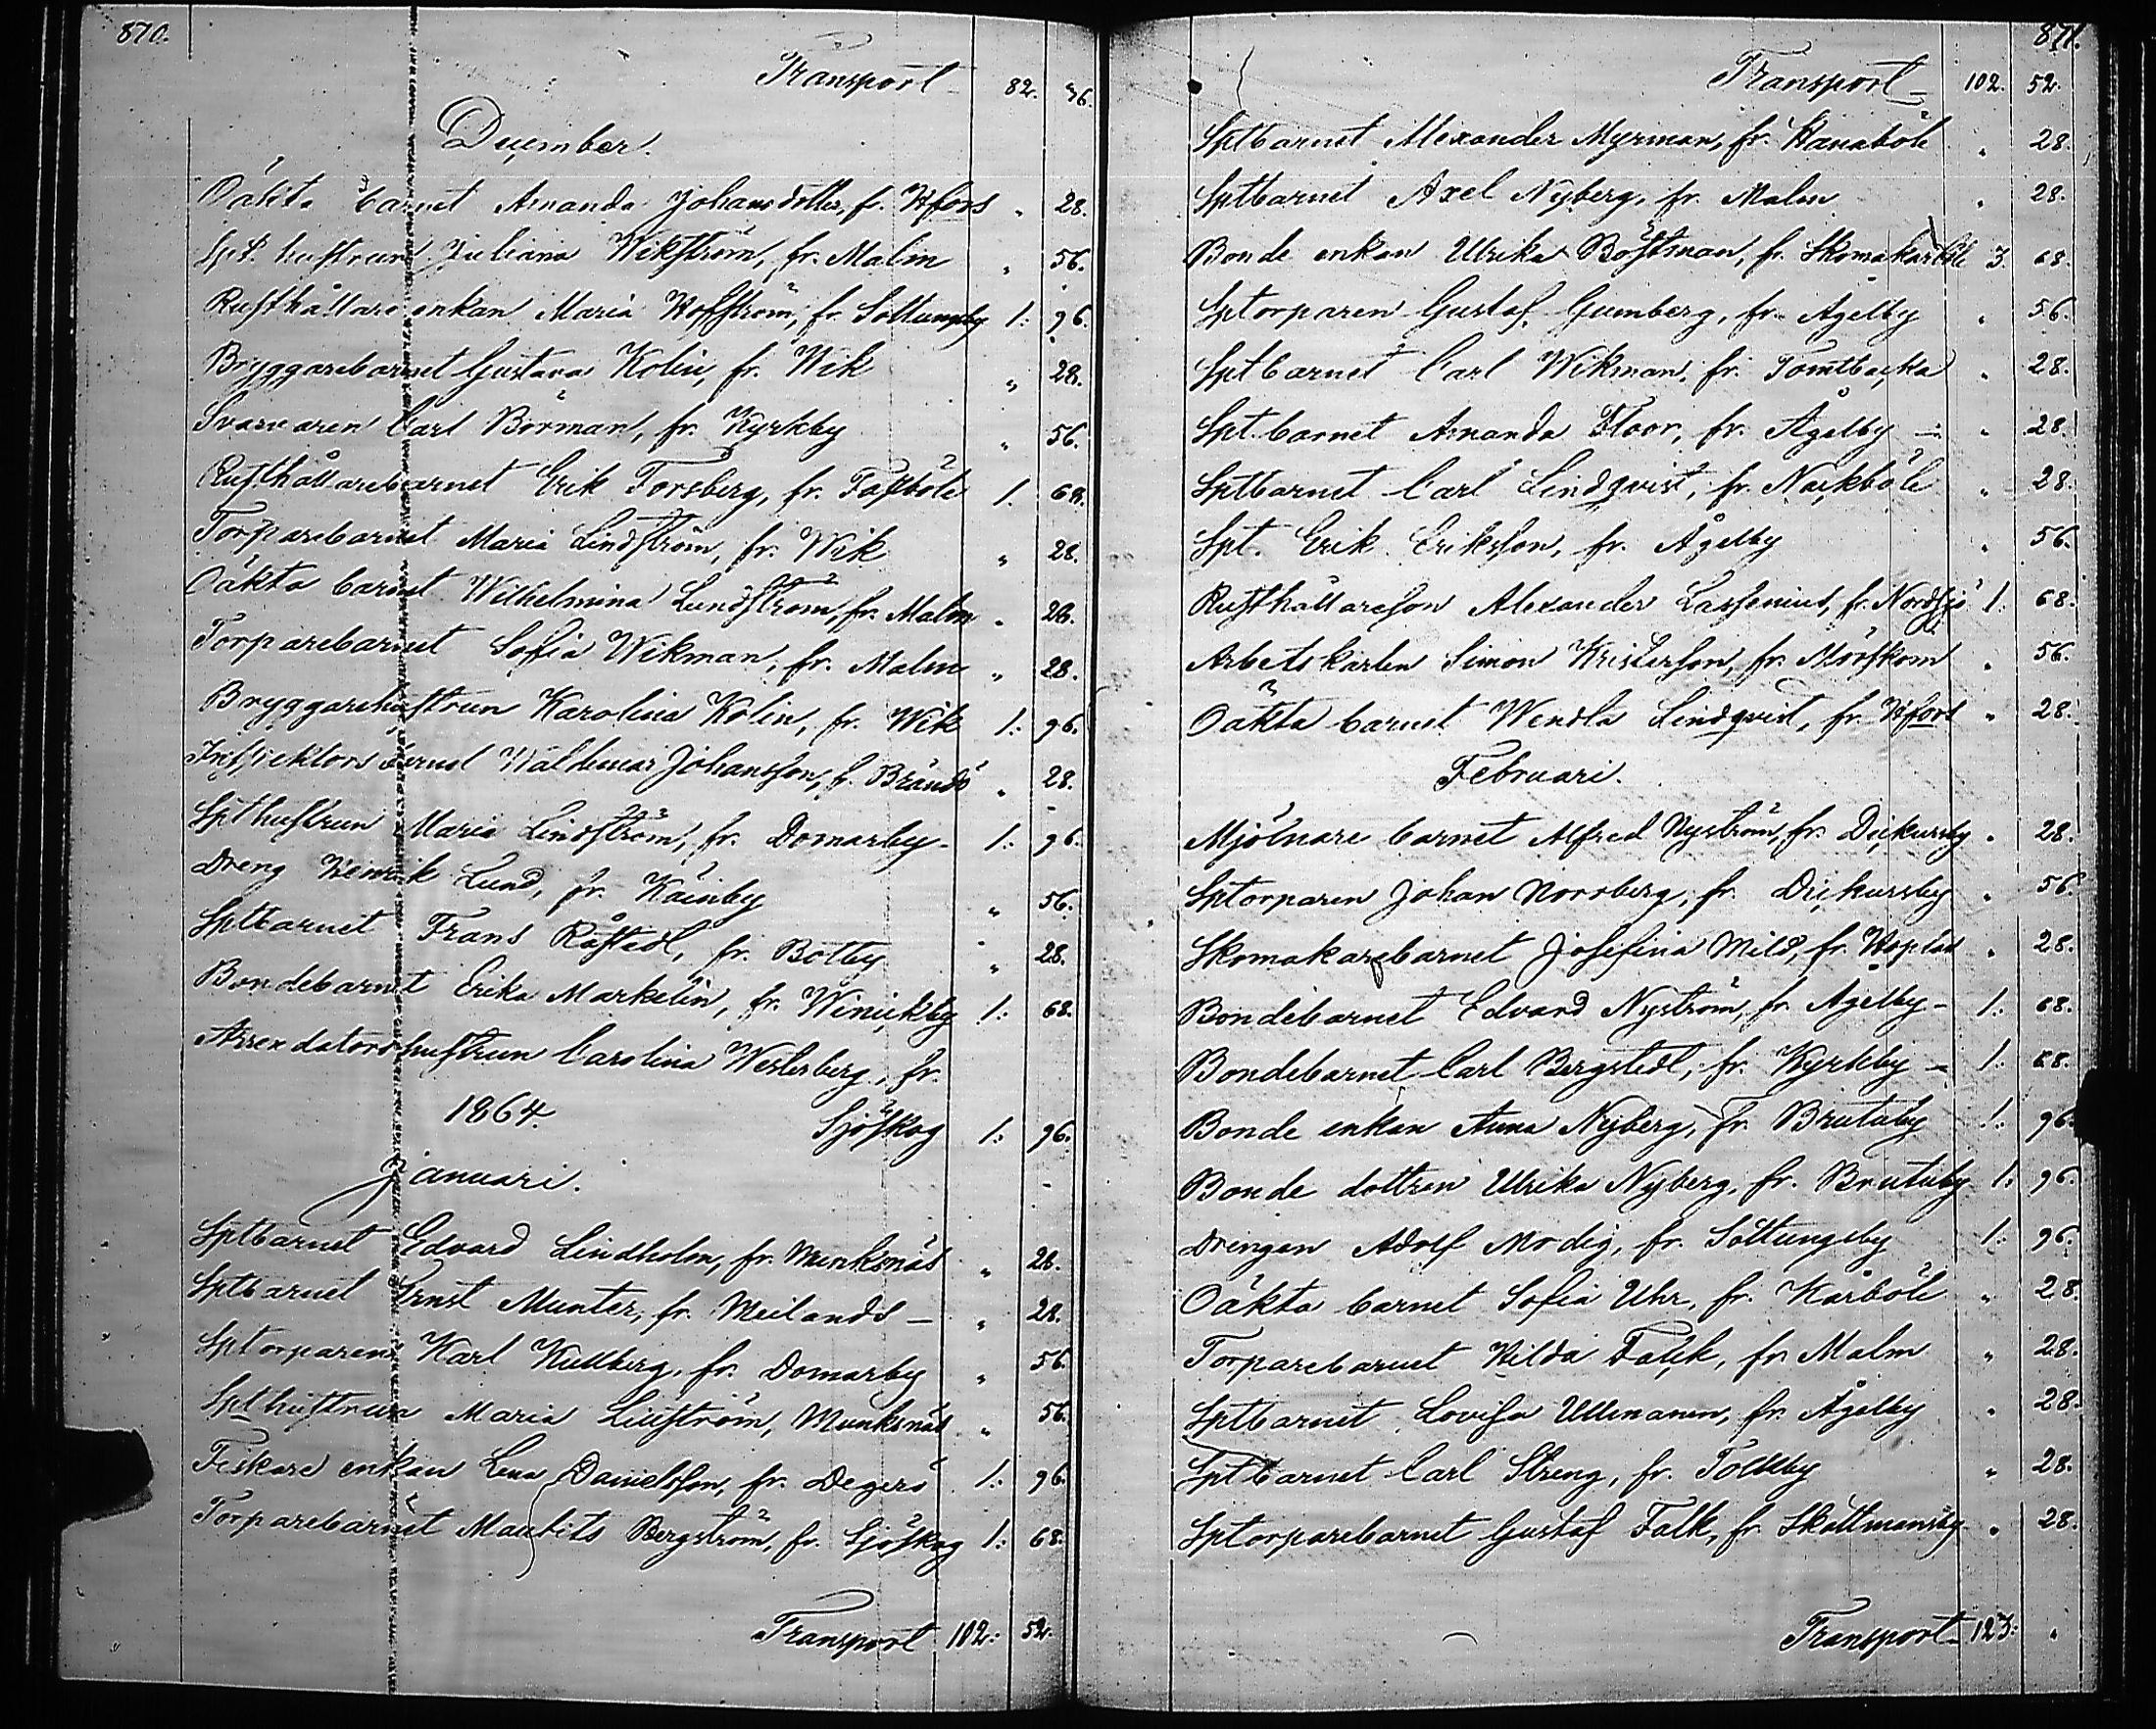 870.
Transport 82. 36.
December.
Oäkta barnet Amanda Johansdotter, fr. Hfors " 28.
Spt. hustrun Juliana Wikström, fr. Malm " 56.
Rusthållare enkan Maria Hoffström, fr. Sottungsby 1: 96.
Bryggarebarnet Gustava Kolin, fr. Wik " 28.
Svarvaren Carl Börman, fr. Kyrkby " 56.
Rusthållarebarnet Erik Forsberg, fr. Fastböle 1. 68.
Torparebarnet Maria Lindström, fr. Wik " 28.
Oäkta barnet Wilhelmina Lundström, fr. Malm " 28.
Torparebarnet Sofia Wikman, fr. Malm " 28.
Bryggarehustrun Karolina Kolin, fr. Wik 1: 96.
Inspektors barnet Waldemar Johansson, fr. Brändö " 28.
Spthustrun Maria Lindström, fr. Domarby - 1: 96.
Dreng Henrik Lund, fr. Käinby " 56.
Sptbarnet Frans Råstedt, fr. Botby " 28.
Bondebarnet Erika Markelin, fr. Winickby 1: 68.
Arrendatorshustrun Carolina Westerberg, fr.
1864. Sjöskog 1: 96.
Januari.
Sptbarnet Edvard Lindholm, fr. Munksnäs " 28.
Sptbarnet Ernst Munter, fr. Meilands - " 28.
Sptorparen Karl Kullberg, fr. Domarby " 56.
Spthustrun Maria Liuström, Munksnäs " 56.
Fiskare enkan Lena Danielsson, fr. Degerö 1: 96.
Torparebarnet Mauritz Bergström, fr. Sjöskog 1: 68.
Transport 102: 52.
871.
Transport - 102. 52.
Sptbarnet Alexander Myrman, fr. Hanaböle " 28.
Sptbarnet Axel Nyberg, fr. Malm " 28.
Bonde enkan Ulrika Boström, fr. Skomakarböle 3. 68.
Sptorparen Gustaf Gumberg, fr. Ågelby " 56.
Sptbarnet Carl Wikman, fr. Tomtbacka " 28.
Spt. barnet Amanda Floor, fr. Ågelby - " 28.
Sptbarnet Carl Lindqvist, fr. Nackböle " 28.
Spt. Erik Eriksson, fr. Ågelby " 56.
Rusthållareson Alexander Lassenius, fr. Nordsjö 1: 68.
Arbetskarlen Simon Kristerson, fr. Mörskom " 56.
Oäkta barnet Wendla Lindqvist, fr. Hfors " 28.
Februari.
Mjölnare barnet Alfred Nyström, fr. Dickursby " 28.
Sptorparen Johan Norrberg, fr. Dickursby " 56.
Skomakarebarnet Josefina Mild, fr. Hoplax " 28.
Bondebarnet Edvard Nyström, fr. Ågelby - 1: 68.
Bondebarnet Carl Bergstedt, fr. Kyrkby - 1: 68.
Bonde enkan Anna Nyberg, fr. Brutuby 1: 96.
Bonde dottren Ulrika Nyberg, fr. Brutuby 1: 96.
Drengen Adolf Modig, fr. Sottungsby 1: 96.
Oäkta barnet Sofia Uhr, fr. Kårböle " 28.
Torparebarnet Hilda Falck, fr. Malm " 28.
Sptbarnet Lovisa Ullmanen, fr. Ågelby " 28.
Sptbarnet Carl Streng, fr. Tolkby " 28.
Sptorparebarnet Gustaf Falk, fr. Skattmansby " 28.
Transport - 123: "